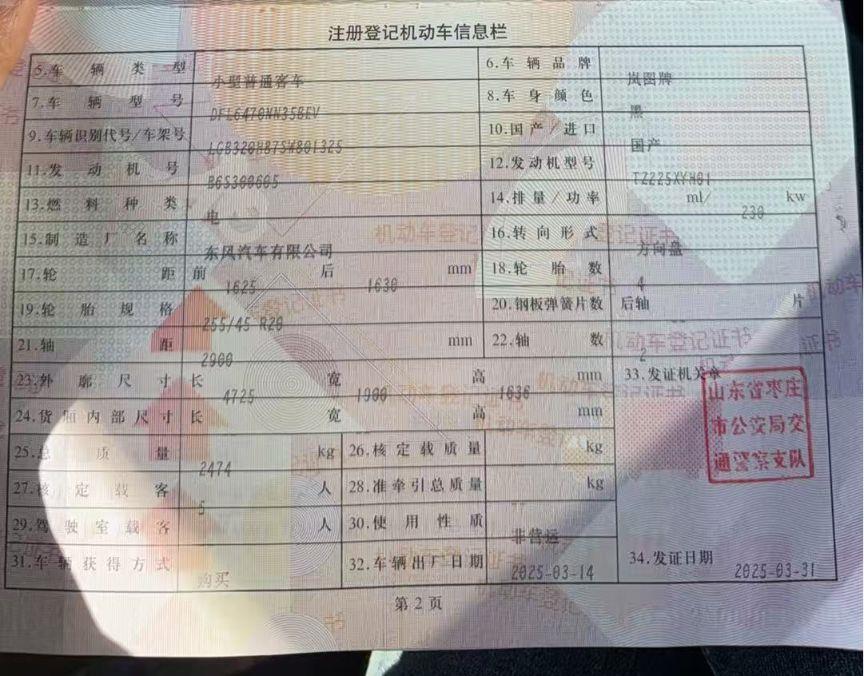 注册登记机动车信息栏
5.车辆类型 小型普通客车 6.车辆品牌 岚图牌
7.车辆型号 DFL6470NN35BEV 8.车身颜色 黑
9.车辆识别代号/车架号 LGB320H875W801325 10.国产/进口 国产
11.发动机号 B65300605 12.发动机型号 TZ225XYH01
13.燃料种类 电 14.排量/功率 ml/ 230 kw
15.制造厂名称 东风汽车有限公司 16.转向形式 方向盘
17.轮距 前 1625 后 1630 mm 18.轮胎数 4
19.轮胎规格 255/45 R20 20.钢板弹簧片数 后轴 片
21.轴距 2900 mm 22.轴数 2
23.外廓尺寸 长 4725 宽 1900 高 1636 mm 33.发证机关章
24.货厢内部尺寸 长 宽 高 mm
山东省枣庄
市公安局交
通警察支队
25.总质量 2474 kg 26.核定载质量 kg
27.核定载客 5 人 28.准牵引总质量 kg
29.驾驶室载客 人 30.使用性质 非营运
31.车辆获得方式 购买 32.车辆出厂日期 2025-03-14 34.发证日期 2025-03-31
第2页